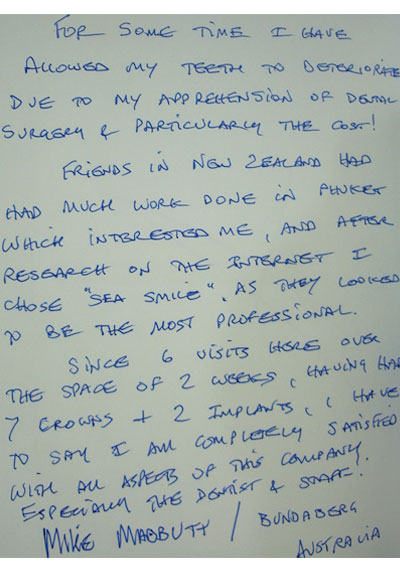 FOR SOME TIME I HAVE
ALLOWED MY TEETH TO DETERIORATE
DUE TO MY APPREHENSION OF DENTAL
SURGERY & PARTICULARLY THE COST!
FRIENDS IN NEW ZEALAND HAD
HAD MUCH WORK DONE IN PHUKET
WHICH INTERESTED ME, AND AFTER
RESEARCH ON THE INTERNET I
CHOSE "SEA SMILE", AS THEY LOOKED
TO BE THE MOST PROFESSIONAL.
SINCE 6 VISITS HERE OVER
THE SPACE OF 2 WEEKS, HAVING HAD
7 CROWNS + 2 IMPLANTS, I HAVE
TO SAY I AM COMPLETELY SATISFIED
WITH ALL ASPECTS OF THIS COMPANY.
ESPECIALLY THE DENTIST & STAFF!
MIKE MABBUTT / BUNDABERG
AUSTRALIA